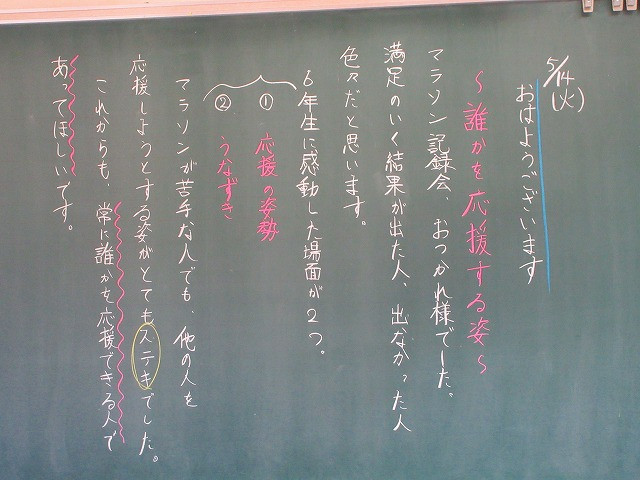 5/14(火)
おはようございます
～誰かを応援する姿～
マラソン記録会、おつかれ様でした。
満足のいく結果が出た人、出なかった人
色々だと思います。
6年生に感動した場面が2つ。
① 応援の姿勢
② うなずき
マラソンが苦手な人でも、他の人を
応援しようとする姿がとてもステキでした。
これからも、常に誰かを応援できる人で
あってほしいです。